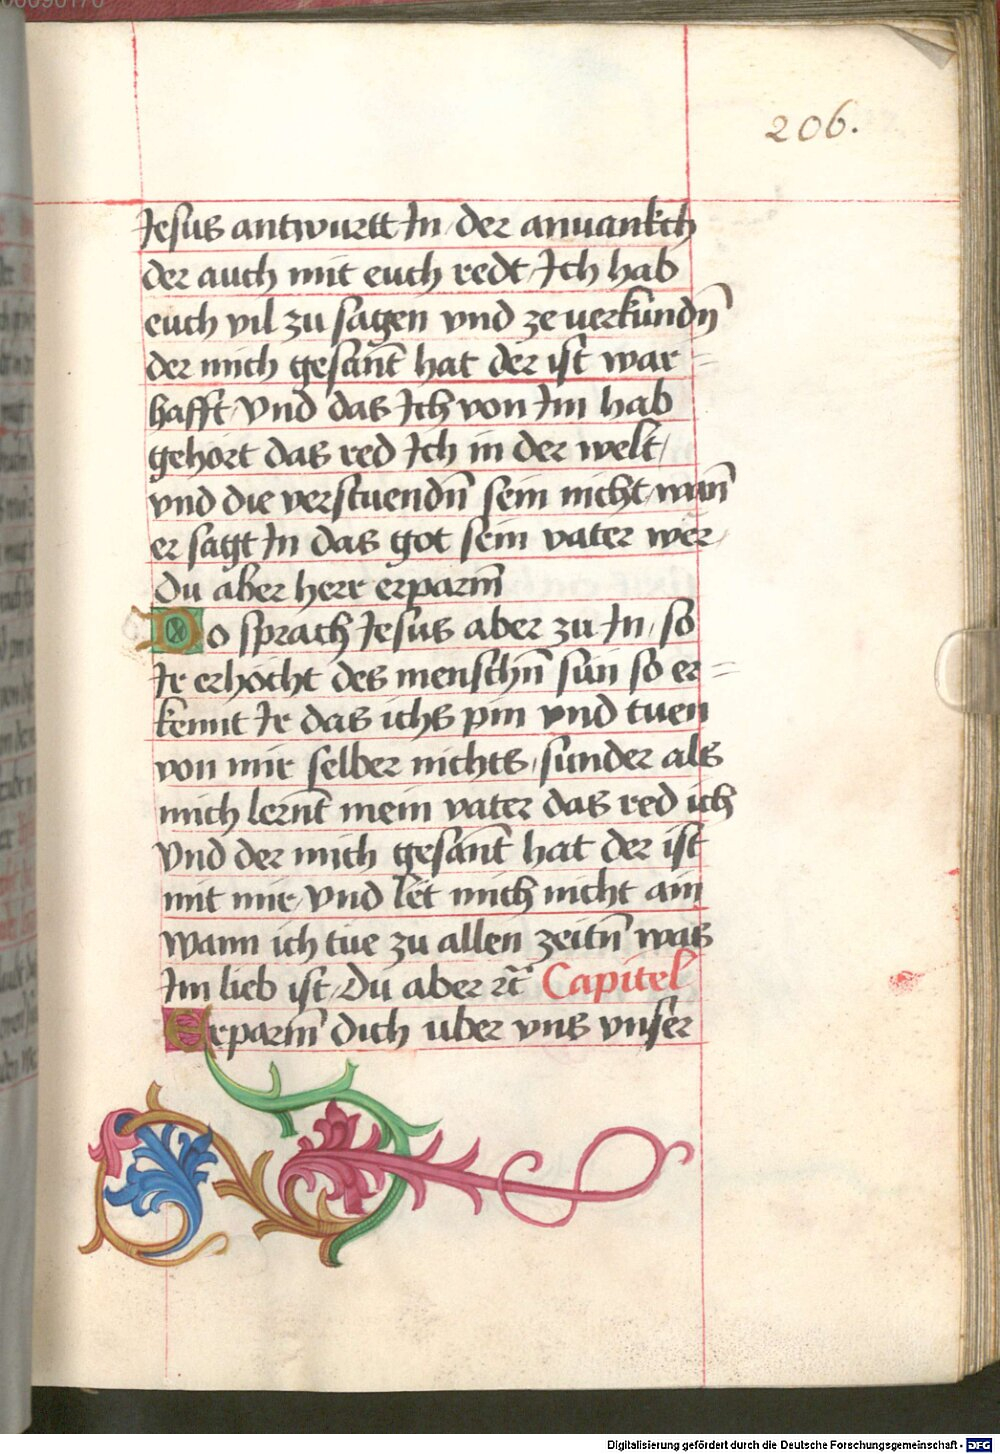 206.
Jesus antwurtt In / der anuankch
der auch mit euch redt / Ich hab
euch vil zu sagen vnd ze uerkündn̄
der mich gesan̄t hat der ist war =
hafft / Vnd das Ich von Im hab
gehört das red Ich in der welt /
vnd die verstuendn̄ sein nicht / wan̄
er sagt In das got sein vater wër /
Du aber herr erparm̄
Do sprach Jesus aber zu In / so
Ir erhöcht des menschn̄ sun so er =
kennt Ir das ichs pin vnd tuen
von mir selber nichts / sunder als
mich lernt̄ mein vater das red ich
Vnd der mich gesan̄t hat der ist
mit mir / Vnd let mich nicht ain
Wann ich tue zu allen zeitn̄ was
Im lieb ist / Du aber rc̄ Capitel
Erparm̄ dich uber vns vnser
Digitalisierung gefördert durch die Deutsche Forschungsgemeinschaft - DFG